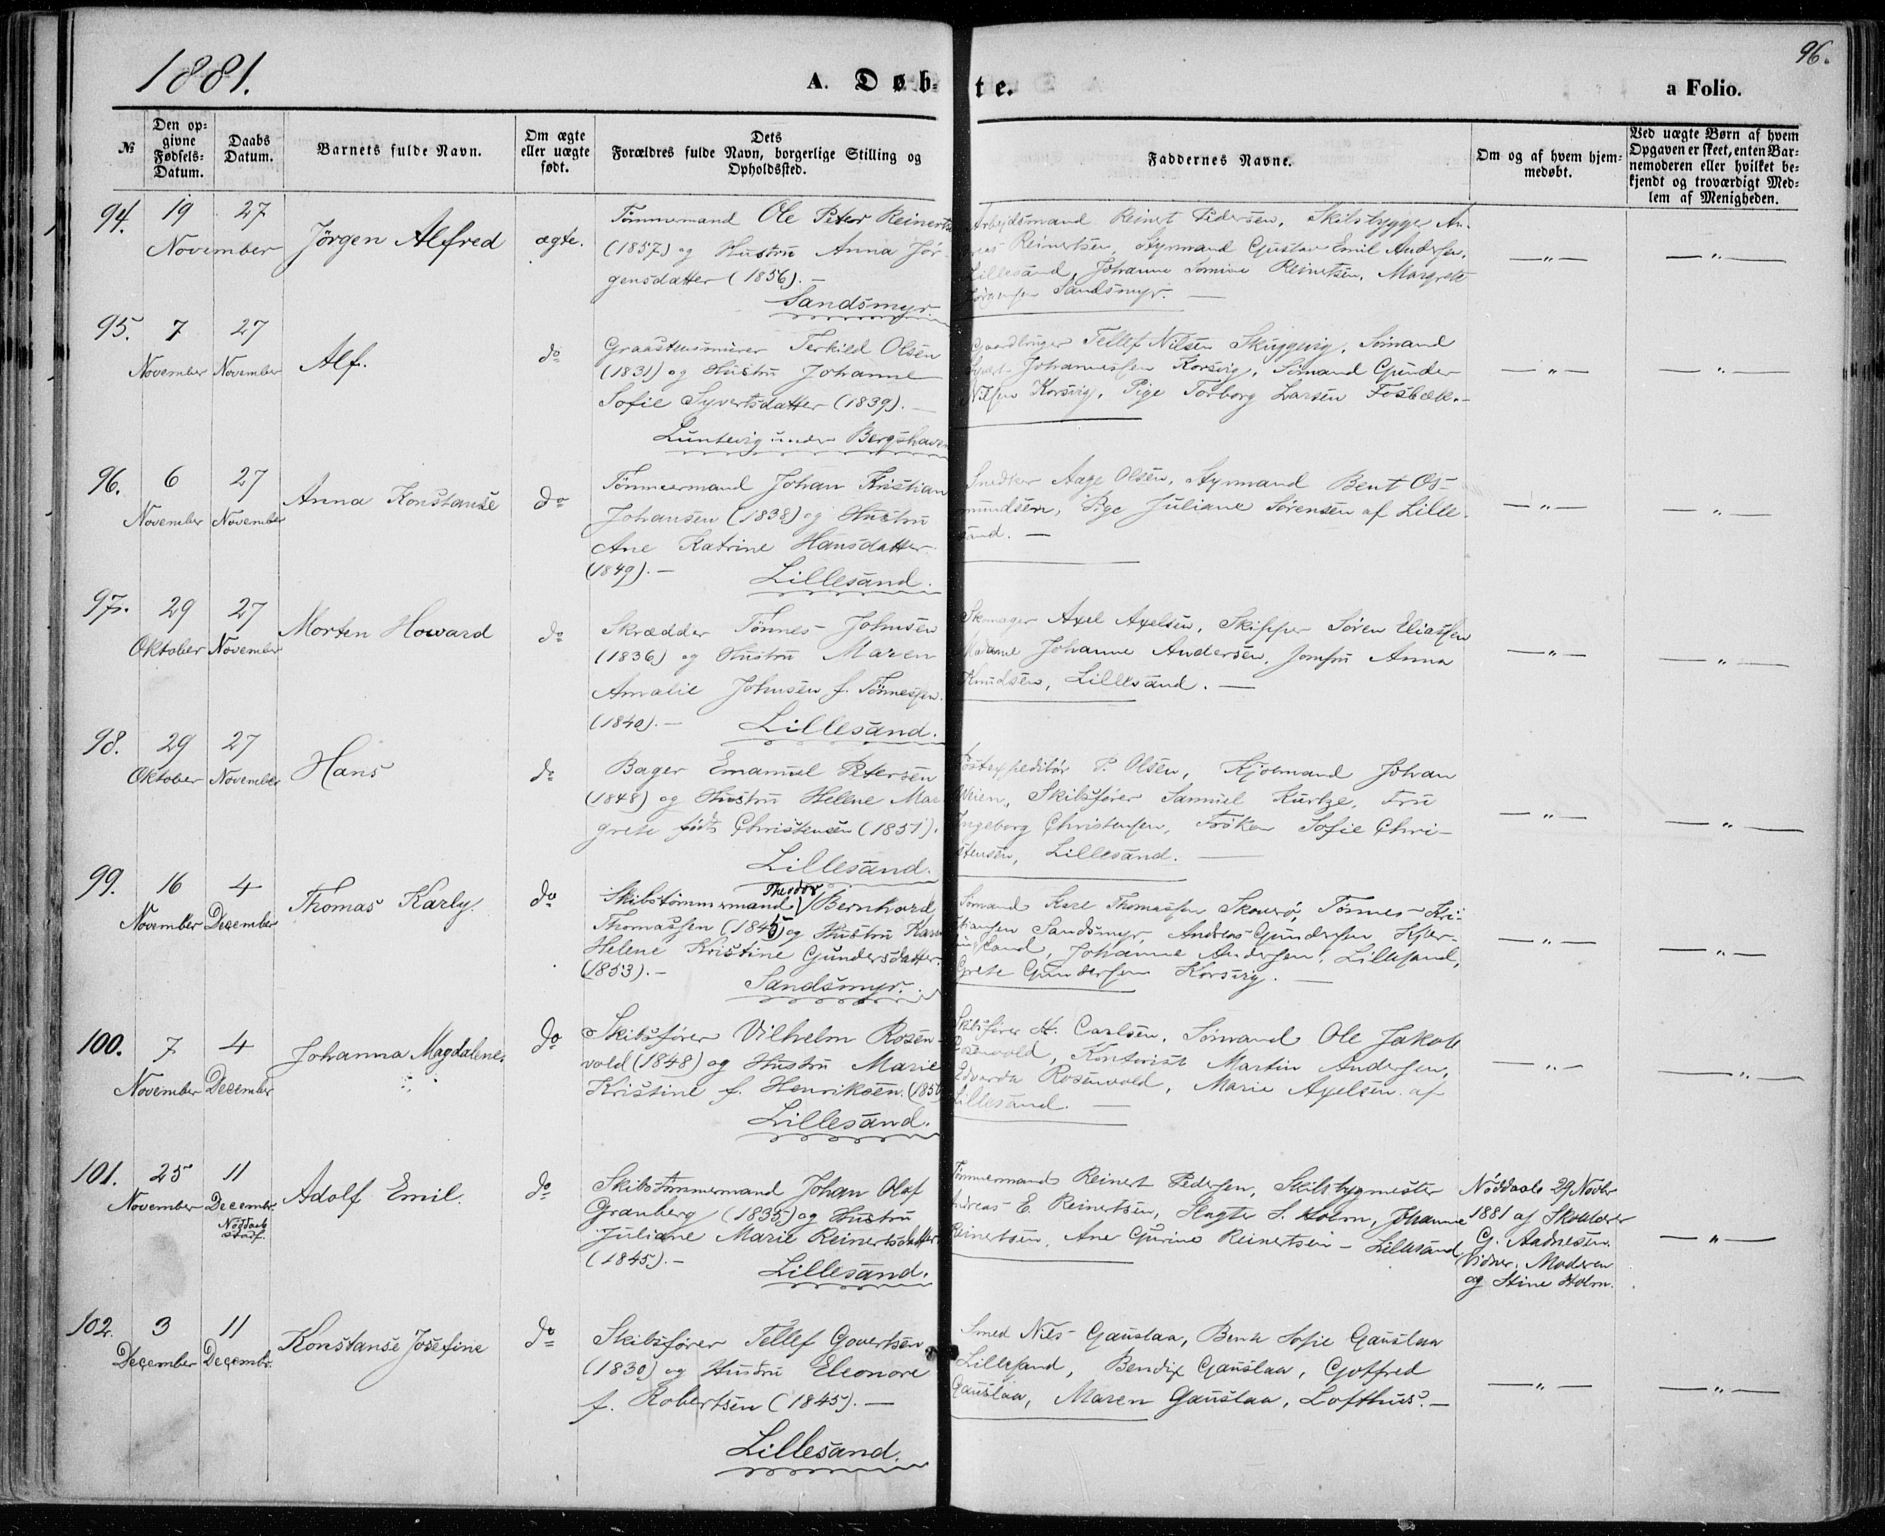 1881.
A. Døb-
te.
a Folio.
96.
№
Den op-
givne
Fødsels-
Datum.
Daabs
Datum.
Barnets fulde Navn.
Om ægte
eller uægte
født.
Dets
Forældres fulde Navn, borgerlige Stilling og
Opholdssted.
Faddernes Navne.
Om og af hvem hjem-
medøbt.
Ved uægte Børn af hvem
Opgaven er skeet, enten Bar-
nemoderen eller hvilket be-
kjendt og troværdigt Med-
lem af Menigheden.
94. 19 27
November
Jörgen Alfred
ægte.
Tømmermand Ole Peter Reinerts
(1857) og Hustru Anna Jör
gensdatter (1856). —
Sandsmyr.
Arbejdsmand Reinert Pedersen, Skibsbygger An-
dreas Reinertsen, Styrmand Gustav Emil Andersen,
Lillesand, Johanne Reinertsen, Margrete
Sandsmyr. —
— " —
— " —
95. 7 27
November November
Alf.
do
Graastensmurer Terkild Olsen
(1831) og Hustru Johanne
Sofie Syvertsdatter (1839). —
Luntevig under Bergshaven
Gaardbruger Tellef Nilsen Skuggevig, Sömand
Johannessen Korsvig, Sömand Gunder
Nilsen Korsvig, Pige Torborg Larsen Fosbæk. —
— " —
— " —
96. 6 27
November November
Anna Konstanse
do
Tömmermand Johan Kristian
Johansen (1838) og Hustru
Ane Katrine Hansdatter
(1849). — Lillesand.
Snedker Aage Olsen, Styrmand Bent Os-
mundsen, Pige Juliane Sörensen af Lille-
sand. —
— " —
— " —
97. 29 27
Oktober November
Morten Howard
do
Skrædder Tönnes Johnsen
(1836) og Hustru Maren
Amalie Johnsen f. Tönnessen.
(1840). — Lillesand.
Skomager Axel Axelsen, Skipper Sören Eliassen
Madame Johanne Andersen, Jomfru Anna
Knudsen, Lillesand. —
— " —
— " —
98. 29 27
Oktober November
Hans
do
Bager Emanuel Petersen
(1848) og Hustru Helene Mar
grete födt Christensen (1851).
Lillesand.
Postexpeditör P. Olsen, Kjöbmand Johan
Weien, Skibsförer Samuel Kurtze, Fru
Ingeborg Christensen, Fröken Sofie Chri-
stensen, Lillesand. —
— " —
— " —
99. 16 4
November December
Thomas Karly.
do
Theodor
Skibstömmermand Bernhard
Thomassen (1845) og Hustru Karen
Helene Kristine Gundersdatter.
(1853). —
Sandsmyr.
Sömand Karl Thomassen Skourö, Tönnes Kri-
stiansen Sandsmyr, Andreas Gundersen
Johanne Andersen, Lillesand,
Grete Gundersen Korsvig. —
— " —
— " —
100. 7 4
November December
Johanna Magdalene.
do
Skibsförer Vilhelm Rosen-
vold (1848) og Hustru Marie
Kristine f. Henriksen. (1856
Lillesand.
Skibsförer H. Carlsen, Sömand Ole Jakob
Rosenvold, Kontorist Martin Andersen,
Edvarda Rosenvold, Marie Axelsen af
Lillesand. —
— " —
— " —
101. 25 11
November December
Nöddaab
stadf.
Adolf Emil.
do
Skibstömmermand Johan Olaf
Granberg (1835) og Hustru
Juliane Marie Reinertsdatter
(1845). —
Lillesand.
Tömmermand Reinert Pedersen, Skibsbygmester
Andreas E. Reinertsen, Slagter S. Holm, Johanne
Reinertsen, Ane Gurine Reinertsen — Lillesand
Nöddaab 29 Novbr
1881 af Skolelærer
G. Aadnesen.
Vidner: Moderen
og Stine Holm.
— " —
102. 3 11
December Decembr.
Konstanse Josefine
do
Skibsförer Tellef Govertsen
(1839) og Hustru Eleonore
f. Robertsen (1845). —
Lillesand.
Smed Niels Gauslaa, Sofie Gauslaa
Lillesand, Bendix Gauslaa, Gotfred
Gauslaa, Maren Gauslaa, Lofthus. —
— " —
— " —